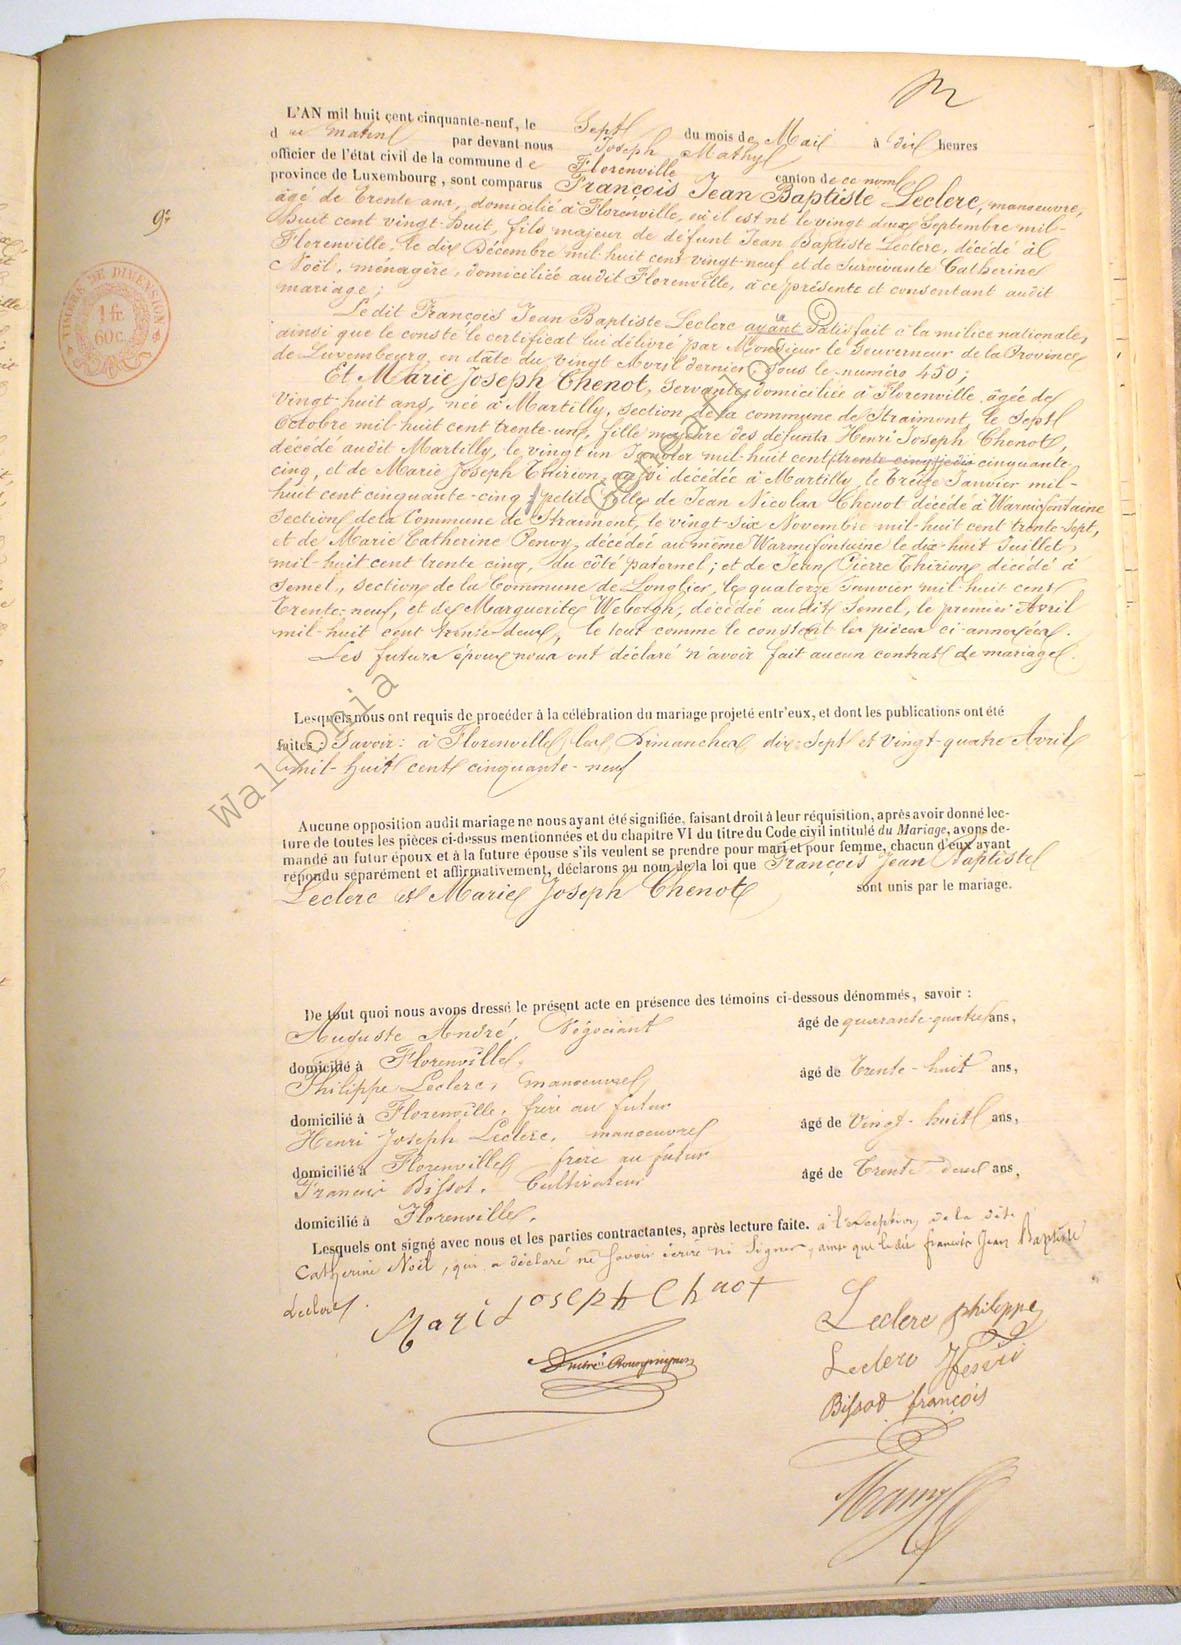 L'AN mil huit cent cinquante-neuf, le Sept du mois de Mai à dix heures
du matin par devant nous Joseph Mathy
officier de l'état civil de la commune de Florenville canton de ce nom
province de Luxembourg, sont comparus François Jean Baptiste Leclerc, manoeuvre,
âgé de trente ans, domicilié à Florenville, où il est né le vingt deux Septembre mil-
huit cent vingt-huit, fils majeur de défunt Jean Baptiste Leclerc, décédé à
Florenville, le dix Décembre mil-huit cent vingt-neuf et de Survivante Catherine
Noël, ménagère, domiciliée audit Florenville, à ce présente et consentant audit
mariage;
9e
TIMBRE DE DIMENSION
1 fr.
60 c.
Le dit François Jean Baptiste Leclerc ayant Satisfait à la milice nationale,
ainsi que le conste le certificat lui délivré par Monsieur le Gouverneur de la Province
de Luxembourg, en date du vingt Avril dernier Sous le numéro 450;
Et Marie Joseph Chenot, Servante, domiciliée à Florenville, âgée de
Vingt-huit ans, née à Martilly, section de la commune de Straimont, le Sept
Octobre mil-huit cent trente-un, fille majeure des défunts Henri Joseph Chenot,
décédé audit Martilly, le vingt un Janvier mil-huit cent cinquante
cinq, et de Marie Joseph Thirion, aussi décédée à Martilly, le treize Janvier mil-
huit cent cinquante-cinq; petite fille de Jean Nicolas Chenot décédé à Warmifontaine
Section de la Commune de Straimont, le vingt-six Novembre mil-huit cent trente-sept,
et de Marie Catherine décédée au même Warmifontaine le dix-huit Juillet
mil-huit cent trente cinq, du côté paternel; et de Jean Pierre Thirion, décédé à
Semel, section de la Commune de Longlier, le quatorze Janvier mil-huit cent
Trente-neuf, et de Marguerite décédée audit Semel, le premier Avril
mil-huit cent trente-deux, le tout comme le constent les pièces ci-annexées.
Les futurs époux nous ont déclaré n'avoir fait aucun contrat de mariage.
Lesquels nous ont requis de procéder à la célébration du mariage projeté entr'eux, et dont les publications ont été
faites: Savoir: à Florenville, les Dimanches, dix-Sept et Vingt-quatre Avril
mil-huit cent cinquante-neuf
Aucune opposition audit mariage ne nous ayant été signifiée, faisant droit à leur réquisition, après avoir donné lec-
ture de toutes les pièces ci-dessus mentionnées et du chapitre VI du titre du Code civil intitulé du Mariage, avons de-
mandé au futur époux et à la future épouse s'ils veulent se prendre pour mari et pour femme, chacun d'eux ayant
répondu séparément et affirmativement, déclarons au nom de la loi que François Jean Baptiste
Leclerc et Marie Joseph Chenot sont unis par le mariage.
De tout quoi nous avons dressé le présent acte en présence des témoins ci-dessous dénommés, savoir:
Auguste André, Négociant âgé de quarante-quatre ans,
domicilié à Florenville,
Philippe Leclerc, manoeuvre âgé de Trente-huit ans,
domicilié à Florenville, frère au futur
Henri Joseph Leclerc, manoeuvre âgé de Vingt-huit ans,
domicilié à Florenville frère au futur
François Bissot, Cultivateur âgé de Trente deux ans,
domicilié à Florenville.
Lesquels ont signé avec nous et les parties contractantes, après lecture faite. à l'exception de la dite
Catherine Noël, qui a déclaré ne Savoir écrire ni Signer, ainsi que le dit françois Jean Baptiste
Leclerc.
Mari Joseph Chnot
Leclerc philippe
Leclerc Henri
Bissot françois
Mathy
Wallonia ©